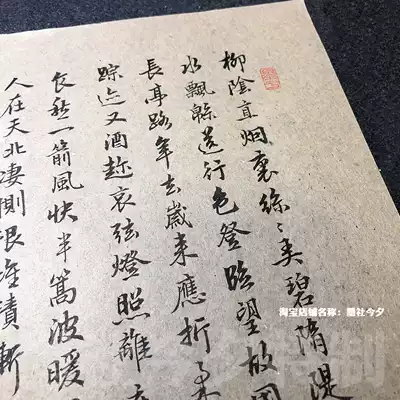 柳陰直烟裏絲〻弄碧隋堤
水飄綿送行色登臨望故
長亭路年去歲来應折
踪迹又酒趁哀弦燈照離
食愁一箭風快半篙波暖
人在天北凄惻恨堆積漸
淘宝店铺名称：社今夕
制